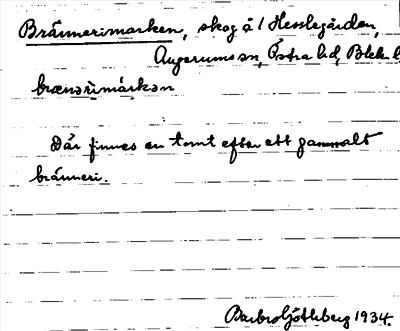 Brännerimarken, skog å 1 Hesslegården,
Augerums sn, Östra hd, Blek. l
brænərìmárkən
Där finnes en tomt efter ett gammalt
bränneri.
Barbro Göthberg 1934.